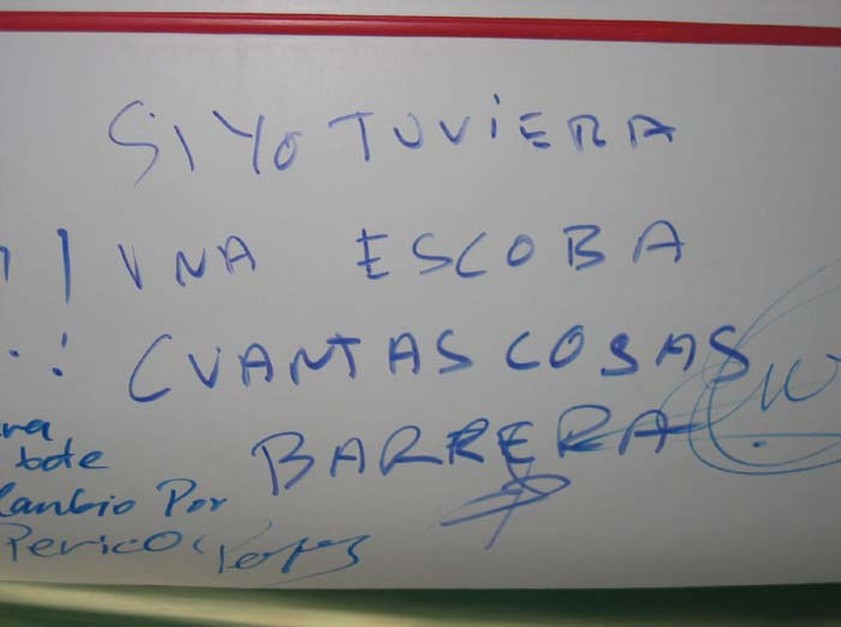 SI YO TUVIERA
UNA ESCOBA
CUANTAS COSAS
BARRERA
bote
Cambio Por
Perico